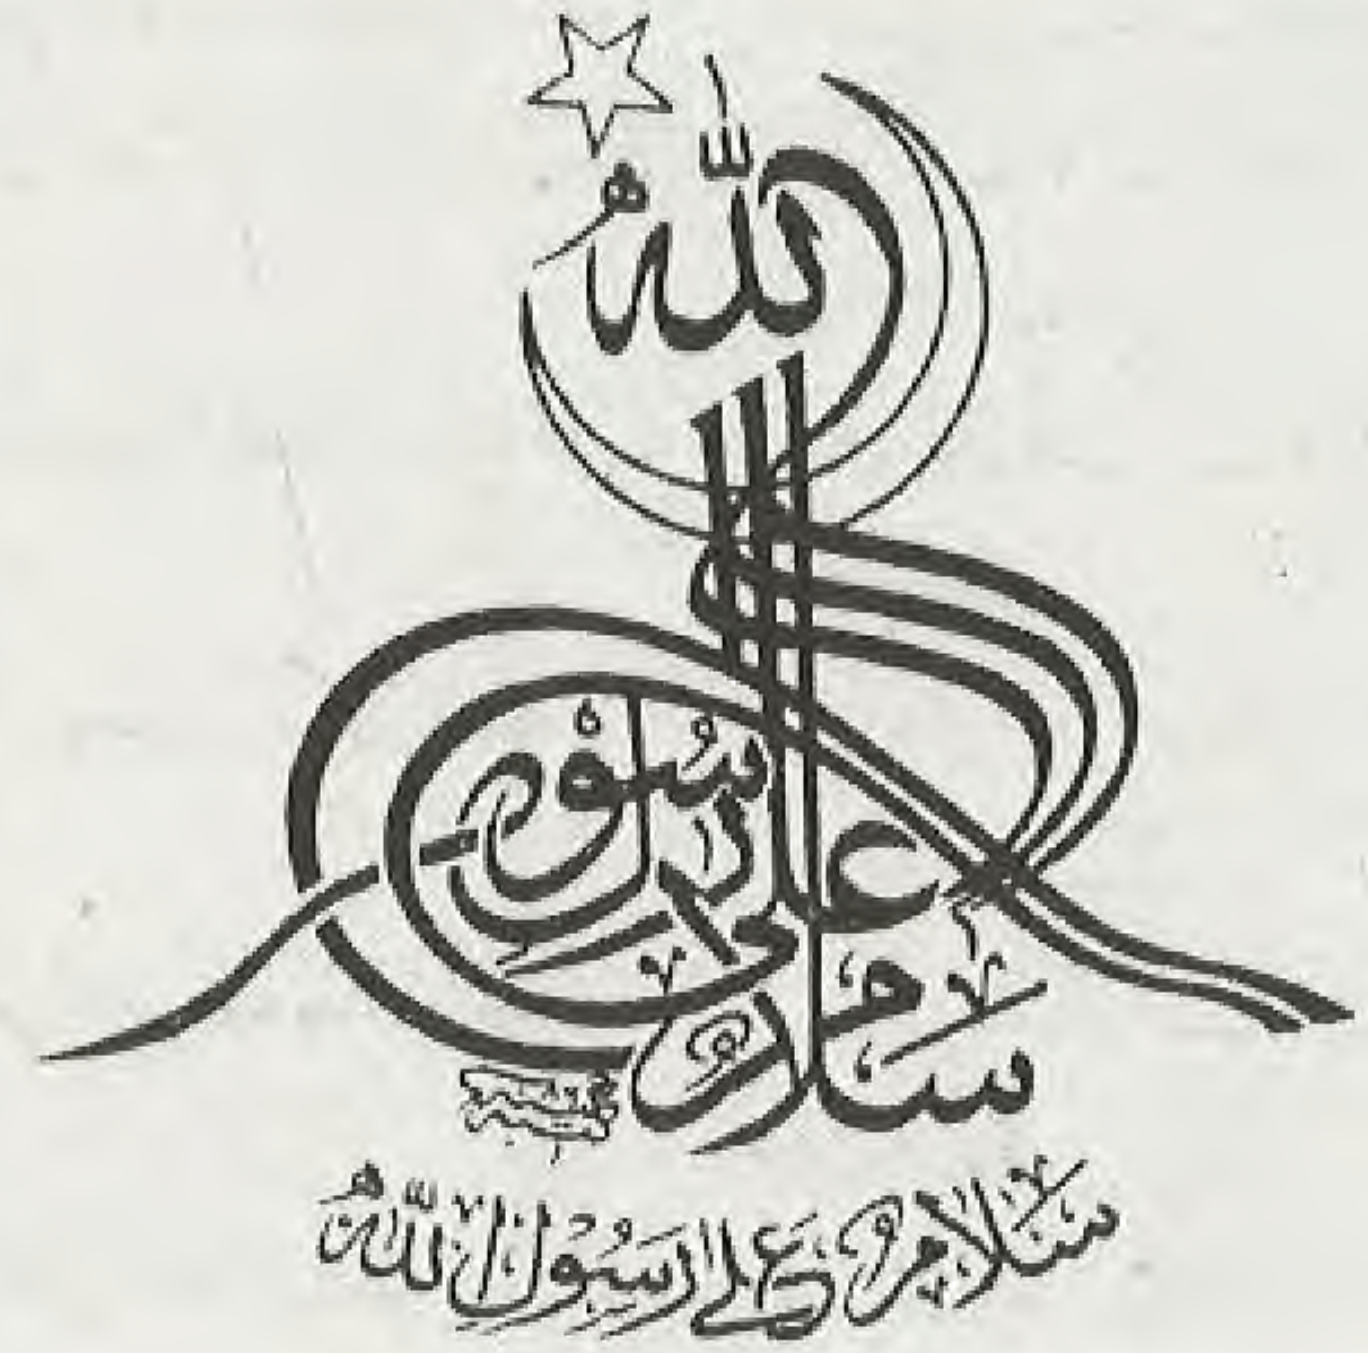 سَلَامٌ عَلَى رَسُولِ اللّٰهِ
سَلَامٌ عَلَى رَسُولِ اللّٰهِ